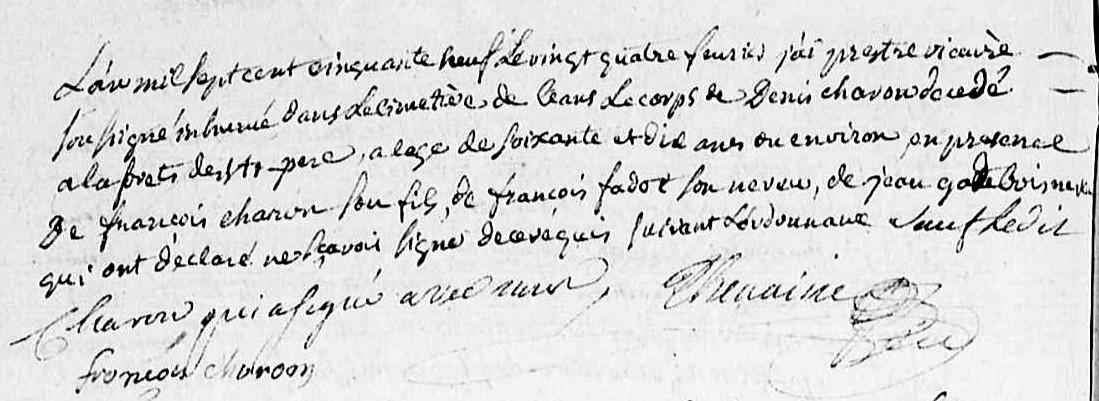 L'an mil sept cent cinquante neuf le vingt quatre feurier j'ai prestre vicaire
soussigné inhumé dans le cimetière de ceans le corps de Denis charon decedé
a la forets de st pere, a lage de soixante et dix ans ou environ en presence
De françois charon son fils, de françois fadot son neveu, de jean
qui ont déclaré ne sçavoir signé de ce requis suivant l'ordonnance sauf le dit
Charon qui a signé avec nous Thenaisie
françois charoon